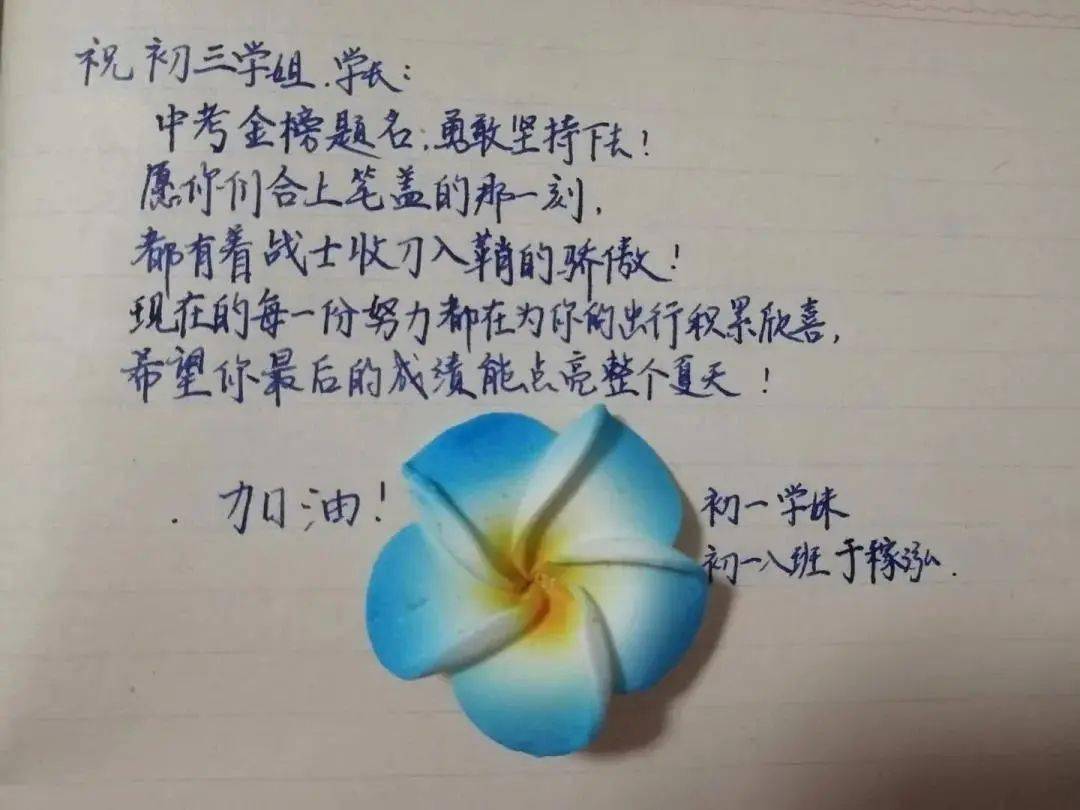 祝初三学姐.学长：
中考金榜题名,勇敢坚持下去！
愿你们合上笔盖的那一刻,
都有着战士收刀入鞘的骄傲！
现在的每一份努力都在为你的出行积累欣喜,
希望你最后的成绩能点亮整个夏天！
加油！
初一学妹
初一八班于稼泓.